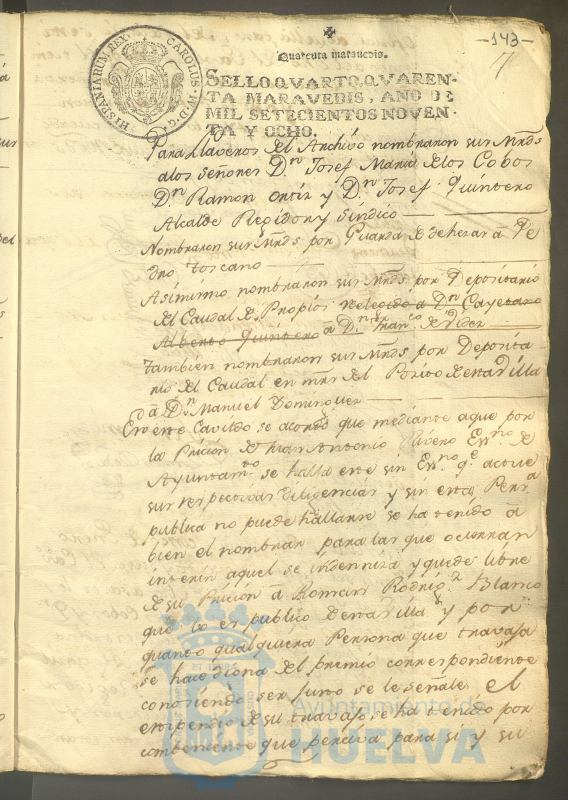 -143-
7
Quarenta maravedis.
HISPANIARUM REX. CAROLUS IV D.G.
SELLO QVARTO, QVAREN-
TA MARAVEDIS, AÑO DE
MIL SETECIENTOS NOVEN-
TA Y OCHO.
Para Llaveros del Archivo nombraron sus Mrds
a los señores Dn Josef Maria de los Cobos
Dn Ramon ortiz y Dn Josef Quintero
Alcalde Regidor y sindico
Nombraron sus Mrds por Guarda de dehesas a Pe
dro toscano
Asimismo nombraron sus Mrds por Depositario
del Caudal de Propios relegido a Dn Cayetano
Alberto Quintero a Dn Franco de
tambien nombraron sus Mrds por Deposita
rio del Caudal en mrs del Posito de esta Villa
a Dn Manuel Dominguez
En este Cavildo se acordó que mediante a que por
la Pricion de Juan Antonio Essno de
Ayuntamto se halla este sin Esno qe actue
sus respectivas diligencias y sin esta Persa
publica no puede hallarse se ha tenido a
bien el nombrar para las que ocurran
interin aquel se indenniza y quede libre
de su Pricion a Roman Rodrigz Blanco
que lo es publico de esta villa y por
quanto qualquiera Persona que travaja
se hace digna del premio correspondiente
conociendo ser justo se le señale el
estipendio de su travajo se ha tenido por
combeniente que perciva para si y su
Ayuntamiento de
HUELVA